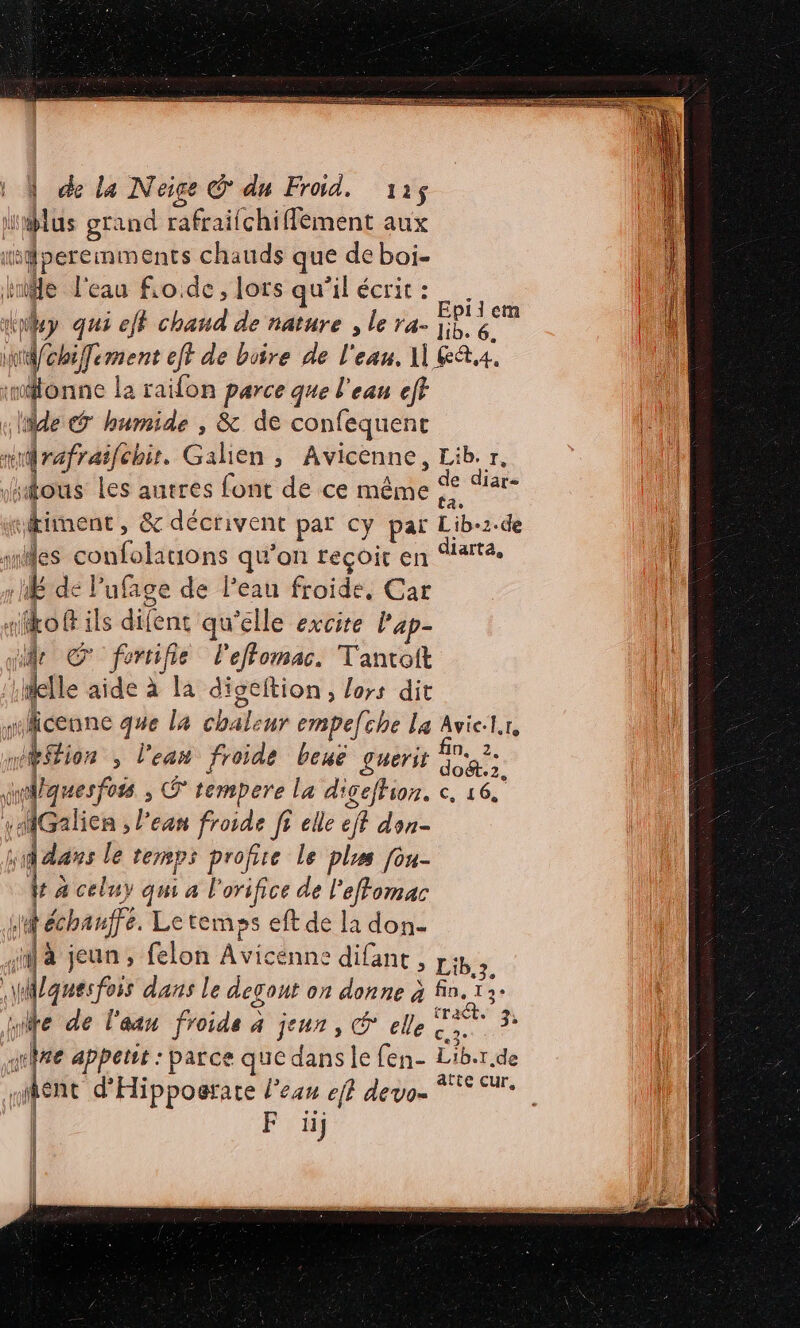 de la Neige & du Froid. 125
plus grand rafraiſchiſſement aux
peremments chauds que de boi-
l'eau froide, lors qu'il écrit :
qui eſt chaud de nature, le ra-
chiſſement eſt de boire de l'eau. Il
donne la raiſon parce que l'eau eſt
& humide, & de conſequent
rafraiſchit. Galien, Avicenne,
tous les autres ſont de ce même
timent, & décrivent par cy par
les conſolations qu'on reçoit en
de l'uſage de l'eau froide. Car
ils diſent qu'elle excite l'ap-
& fortifie l'eſtomac. Tantoſt
elle aide à la digeſtion, lors dit
icenne que la chaleur empeſche la
ſtion, l'eau froide beuë guerit
quesfois, & tempere la digeſtion.
Galien, l'eau froide ſi elle eſt don-
dans le temps profite le plus ſou-
à celuy qui a l'orifice de l'eſtomac
échauffé. Le temps eſt de la don-
à jeun, ſelon Avicenne diſant,
lquesfois dans le degout on donne à
de l'eau froide à jeun, & elle
ne appetit : parce que dans le ſen-
ent d'Hippocrate l'eau eſt devo-
F iij
Epidem
lib. 6.
ſect. 4.
Lib. 1.
de diar-
ta.
Lib. 2. de
diarta.
Avic. l. 1.
fin. 2.
doct. 2.
c. 16.
Lib. 3.
fin. 13.
tract. 3.
c. 3.
Lib. 1. de
arte cur.